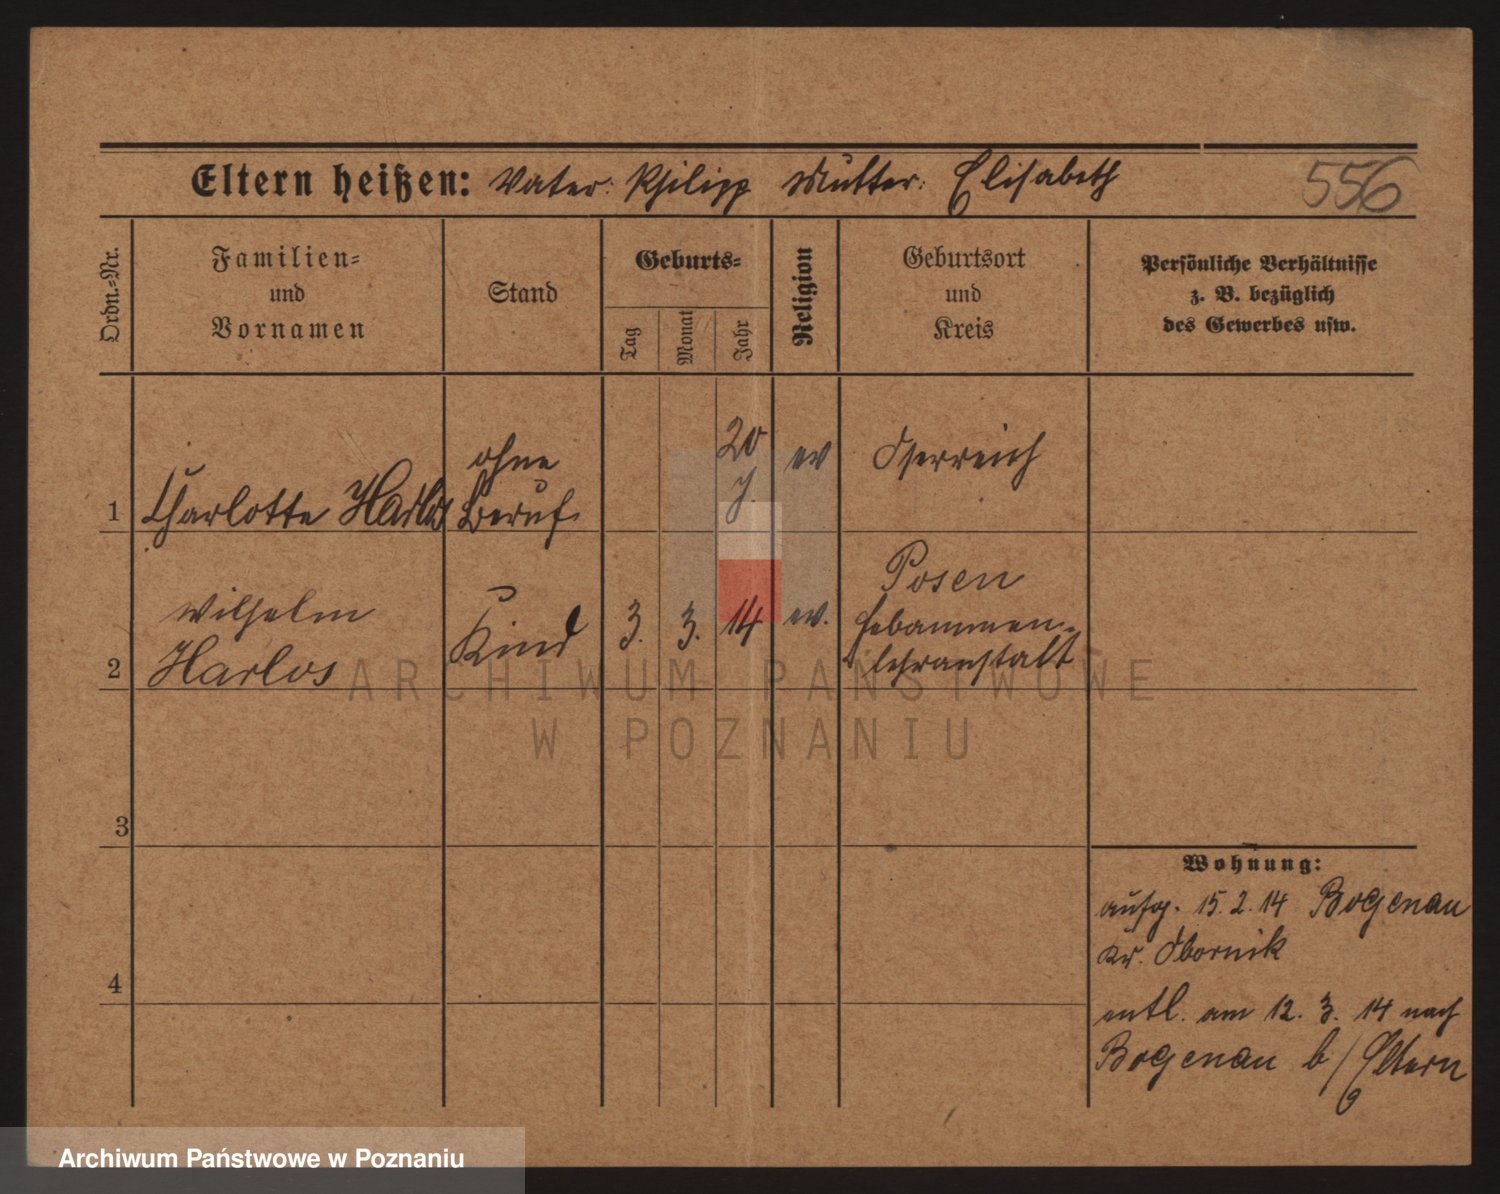 Eltern heißen: Vater: Philipp Mutter: Elisabeth 556
Ordn.-Nr.
Familien-
und
Vornamen
Stand
Geburts-
Tag
Monat
Jahr
Religion
Geburtsort
und
Kreis
Persönliche Verhältnisse
z. B. bezüglich
des Gewerbes usw.
1
Charlotte Harlos
ohne
Beruf.
20
J.
ev
Österreich
2
Wilhelm
Harlos
Kind
3. 3. 14
ev.
Posen
Hebammen-
lehranstalt
ARCHIWUM PAŃSTWOWE
W POZNANIU
3
4
Wohnung:
aufg. 15.2.14 Bogenau
Kr. Obornik
entl. am 12. 3. 14 nach
Bogenau b/Eltern
Archiwum Państwowe w Poznaniu